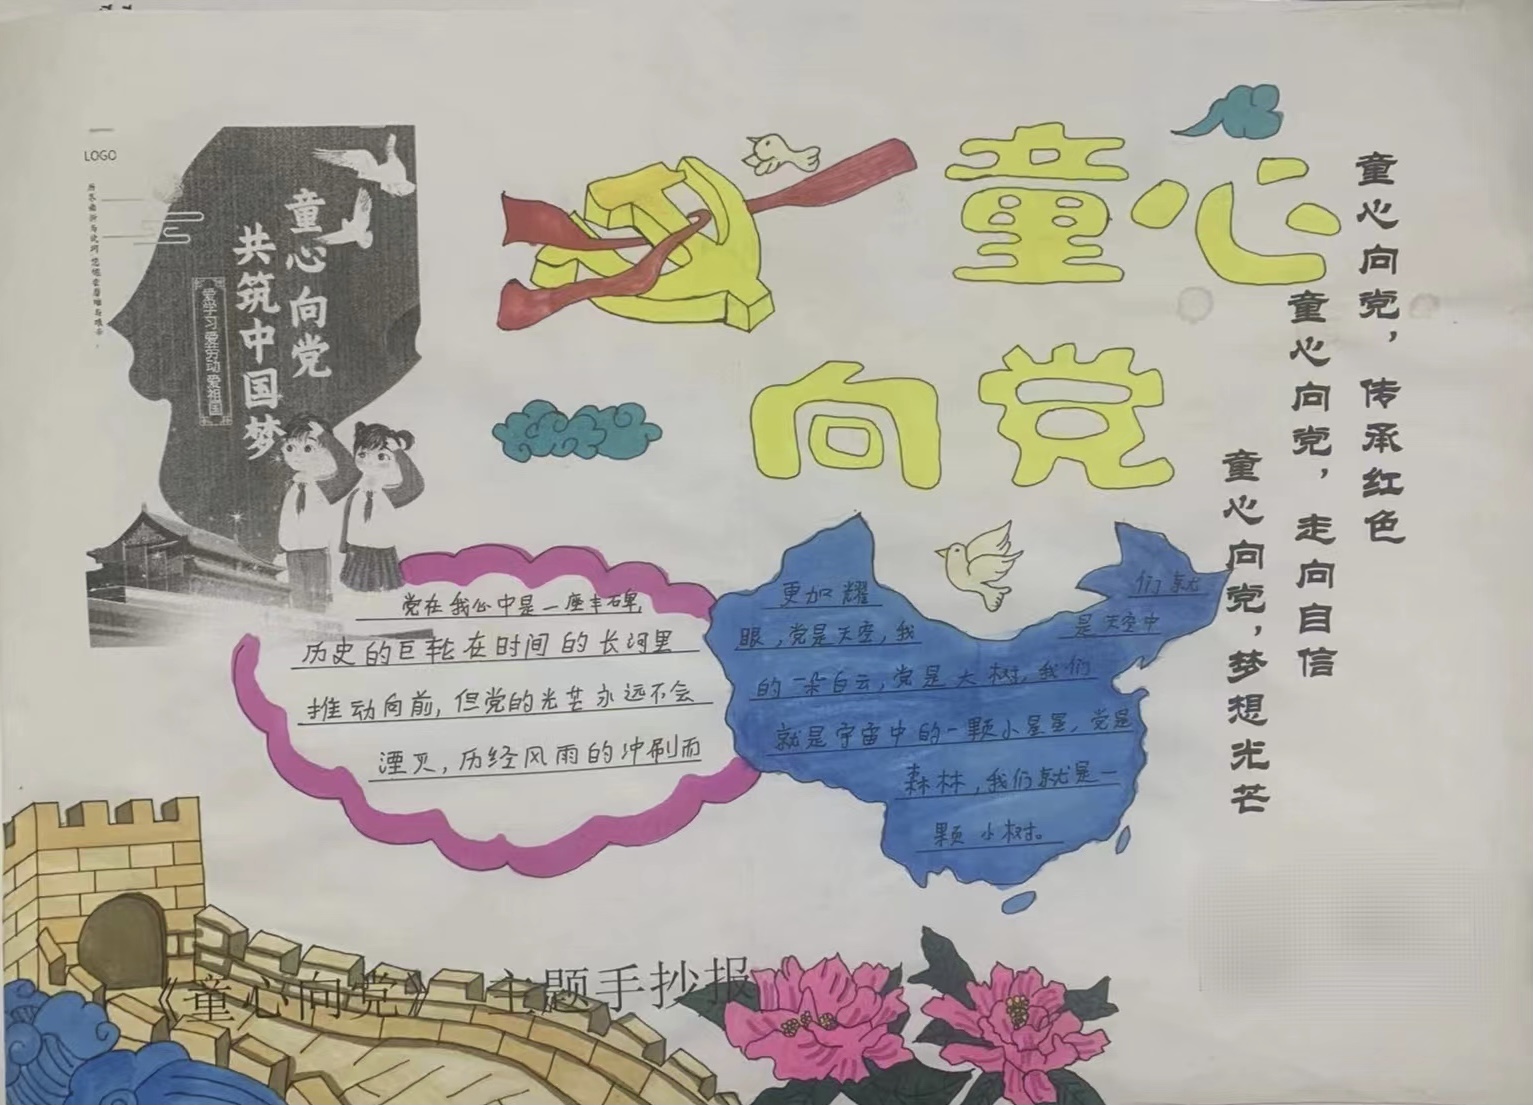 LOGO
童心向党
共筑中国梦
爱学习 爱劳动 爱祖国
童心
向党
童心向党，传承红色
童心向党，走向自信
童心向党，梦想光芒
党在我心中是一座丰碑，
历史的巨轮在时间的长河里
推动向前，但党的光芒永远不会
湮灭，历经风雨的冲刷而
更加耀
眼，党是天空，我
们就
是天空中
的一朵白云，党是大树，我们
就是宇宙中的一颗小星星，党是
森林，我们就是一
颗小树。
《童心向党》主题手抄报